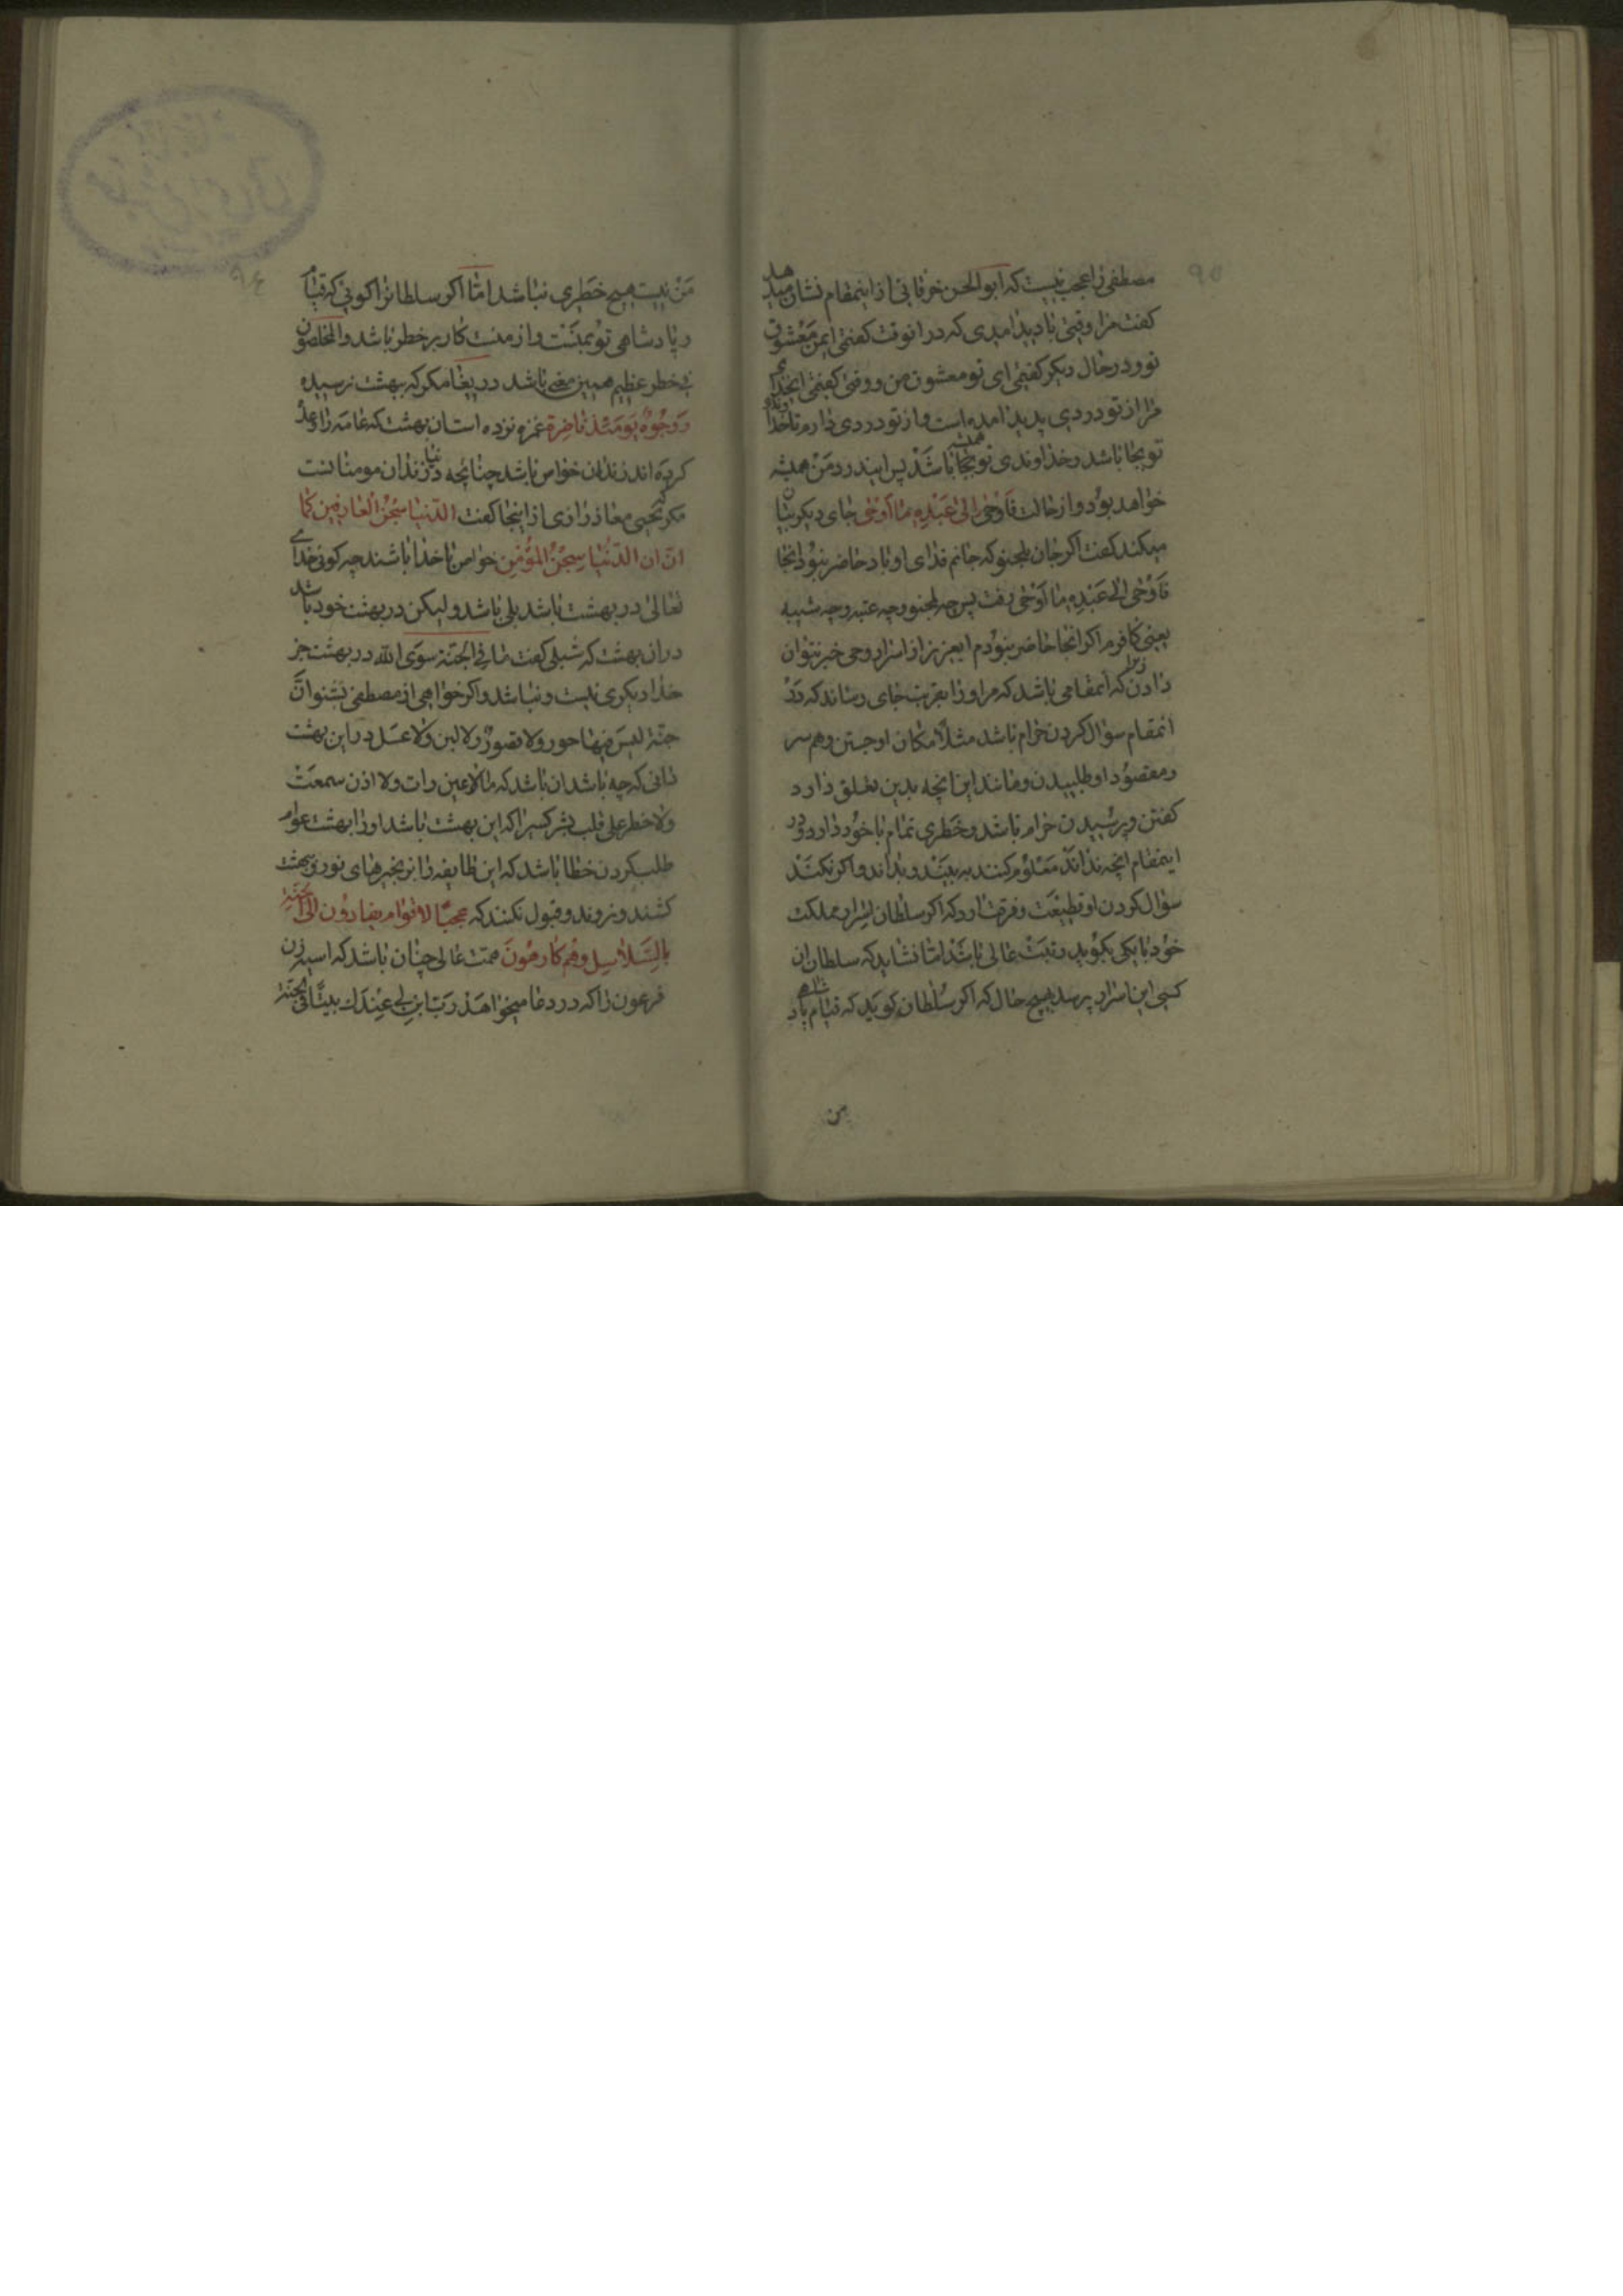 مصطفی را عجب نیست که ابوالحسن خرقانی از اینمقام نشان میدهد
کفت مرا وقتی با دید امدی که در انوقت کفتمی ایمن معشوق
تو و در حال دیکر کفتمی ای تو معشوق من و وقتی کفتمی ایخدای
مرا از تو دردی پدید امده است و از تو دردی دارم تا خداوندی
تو بجا باشد و خداوندی تو همیشه بجا باشد پس این درد من همیشه
خواهد بود و از حالت فاوحی الی عبده ما اوحی جای دیکر بیان
میکند کفت اکر جان بلجنو که جانم فدای او باد حاضر نبود انجا
فاوحی الی عبده ما اوحی رفت پس چه بلجنو و چه عتبه و چه شیبه
یعنی کافرم اکر انجا حاضر نبودم ایعزیز از اسرار وحی خبر نتوان
دادن زیرا که انمقامی باشد که مر او را بقربت جای رساند که در
انمقام سؤال کردن حرام باشد مثلا مکان او جستن و هم سر
و مقصود او طلبیدن و مانند این انچه بدین تعلق دارد
کفتن و پرسیدن حرام باشد و خطری تمام با خود دارد و در
اینمقام انچه نداند معلوم کنند به بینند و بداند و اکر نکنند
سؤال کردن او قطیعت و فرقت ارد که اکر سلطان اسرار مملکت
خود با یکی بکوید رتبت عالی باشد اما نشاید که سلطان ان
کسی این اسرار پرسد بهیچ حال که اکر سلطان کوید که قیام پادشاهی
من
من نیست هیچ خطری نباشد اما اکر سلطانرا کوئی که قیام
و پادشاهی تو بمنست و از منست کار بر خطر باشد و المخلصون
فی خطر عظیم همین معنی باشد دریغا مکر که ببهشت نرسیده
و وجوه یومئذ ناضرة غمزه نزده است ان بهشت که عامه را وعده
کرده اند زندان خواص باشد چنانچه دنیا زندان مومنانست
مکر که یحیی معاذ رازی از اینجا کفت الدنیا سجن العارفین کما
ان الدنیا سجن المؤمن خواص با خدا باشند چه کوئی خدای
تعالی در بهشت باشد بلی باشد ولیکن در بهشت خود باشد
در ان بهشت که شبلی کفت ما فی الجنة سوی الله در بهشت جز
خدا دیکری نیست و نباشد و اکر خواهی از مصطفی بشنو ان
جنة لیس فیها حور ولا قصور ولا لبن ولا عسل در این بهشت
دانی که چه باشد ان باشد که ما لا عین رات ولا اذن سمعت
ولا خطر علی قلب بشر کسیرا که این بهشت باشد او را بهشت عوام
طلب کردن خطا باشد که این طایفه را بزنجیرهای نور و بهشت
کشند و نروند و قبول نکنند که عجبا لاقوام یقادون الی الجنة
بالسلاسل وهم کارهون همت عالی چنان باشد که اسیه زن
فرعون را که در دعا میخواهد رب ابن لی عندک بیتا فی الجنة